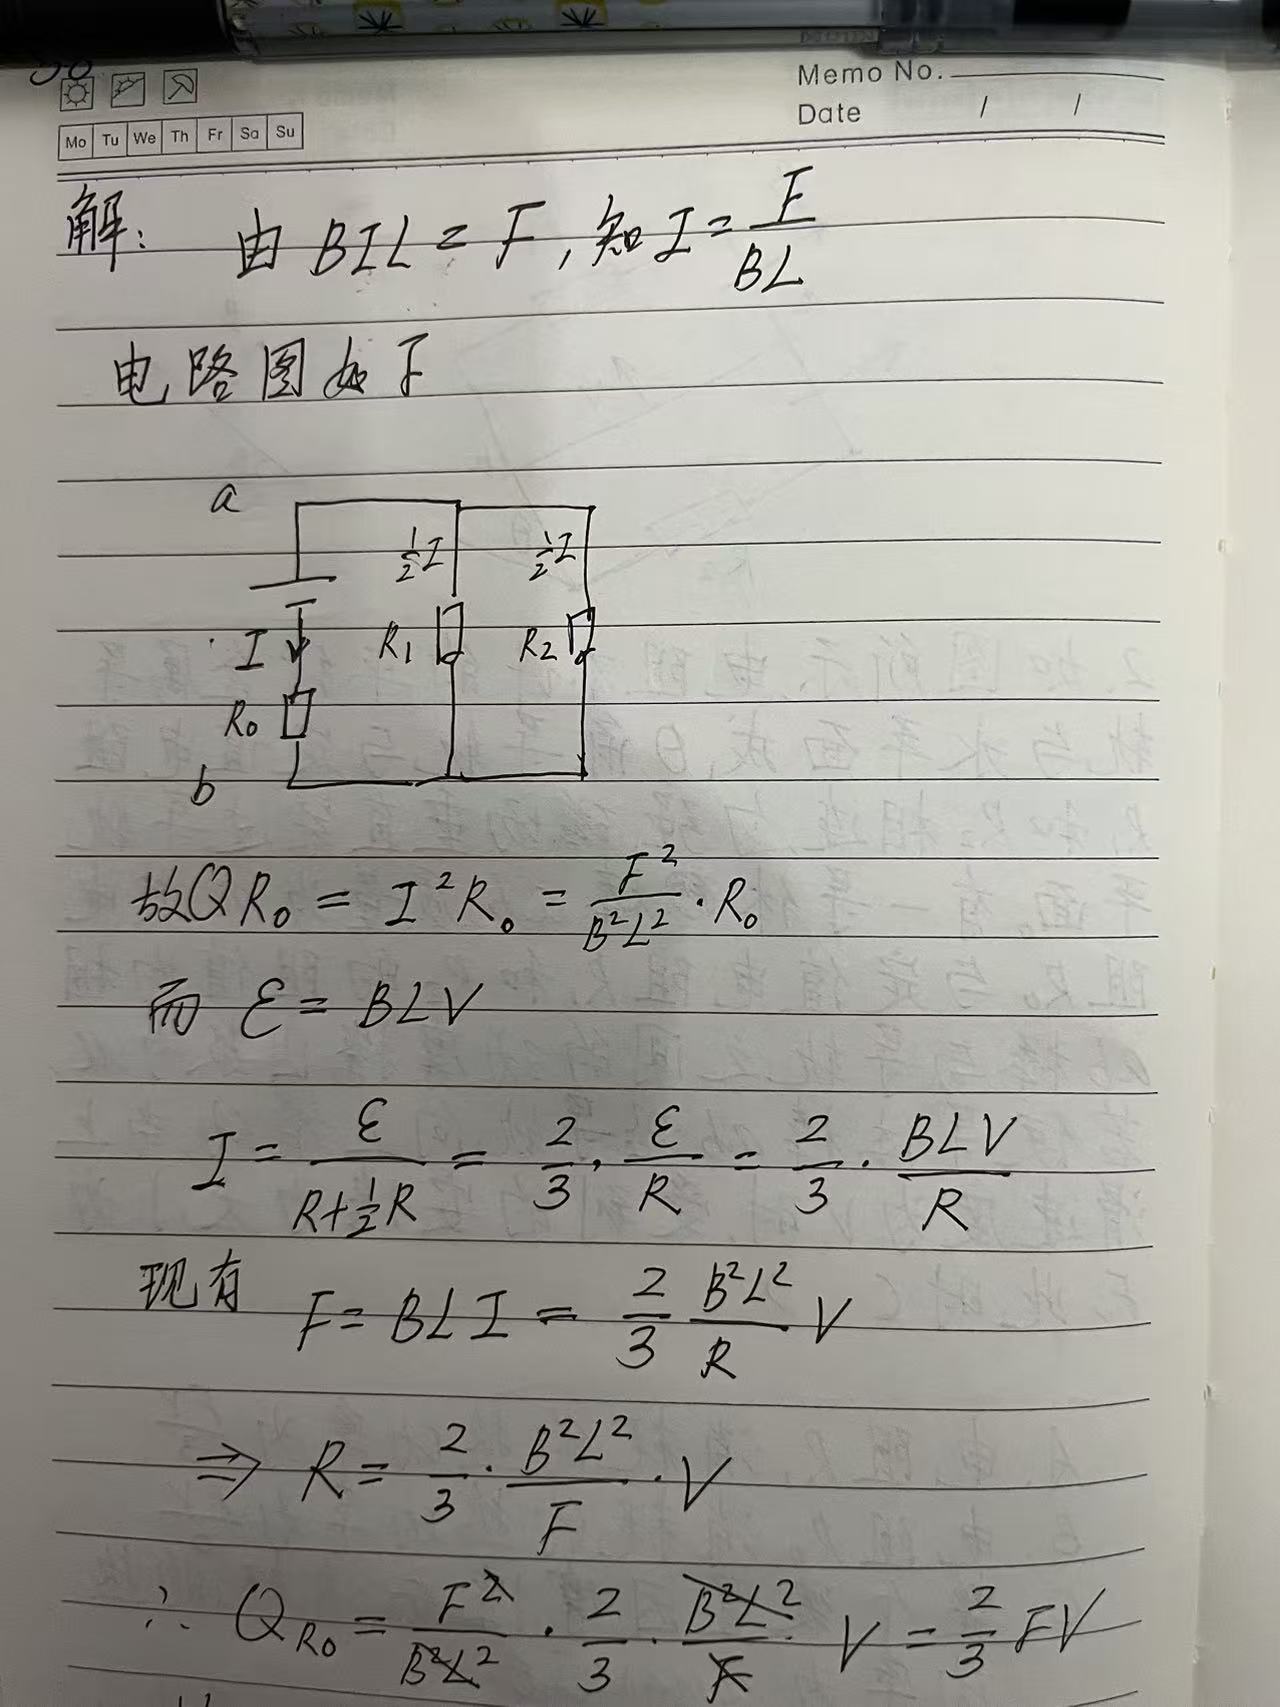 Memo No.
Mo Tu We Th Fr Sa Su
Date / /
解: 由 BIL = F, 知 I = F/BL
电路图如下
a
½I ½I
I R₁ R₂
R₀
b
故QR₀ = I²R₀ = F²/B²L² · R₀
而 ε = BLV
I = ε/(R+½R) = 2/3 · ε/R = 2/3 · BLV/R
现有 F = BLI = 2/3 B²L²/R V
⇒ R = 2/3 · B²L²/F · V
∴ Q_R₀ = F²/B²L² · 2/3 · B²L²/F · V = 2/3 FV